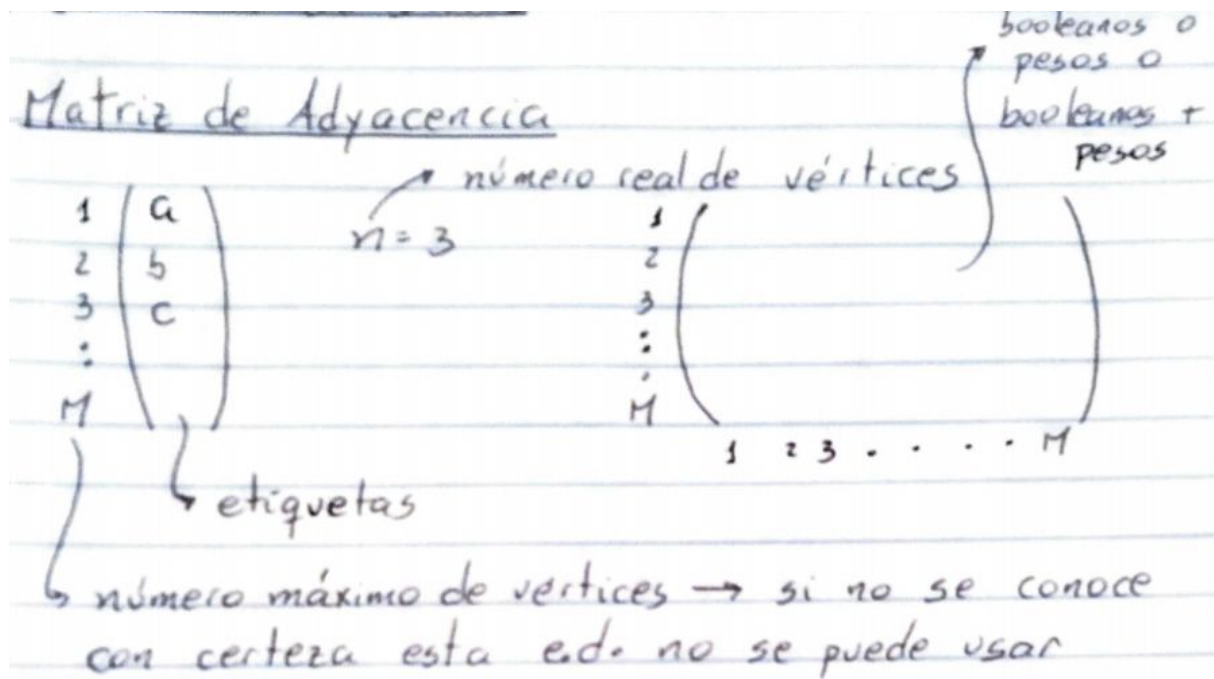 booleanos o
pesos o
booleanos +
pesos
Matriz de Adyacencia
número real de vértices
n = 3
1 a
2 b
3 c
:
M
1
2
3
:
.
M
1 2 3 . . . . M
etiquetas
número máximo de vertices → si no se conoce
con certeza esta e.d. no se puede usar